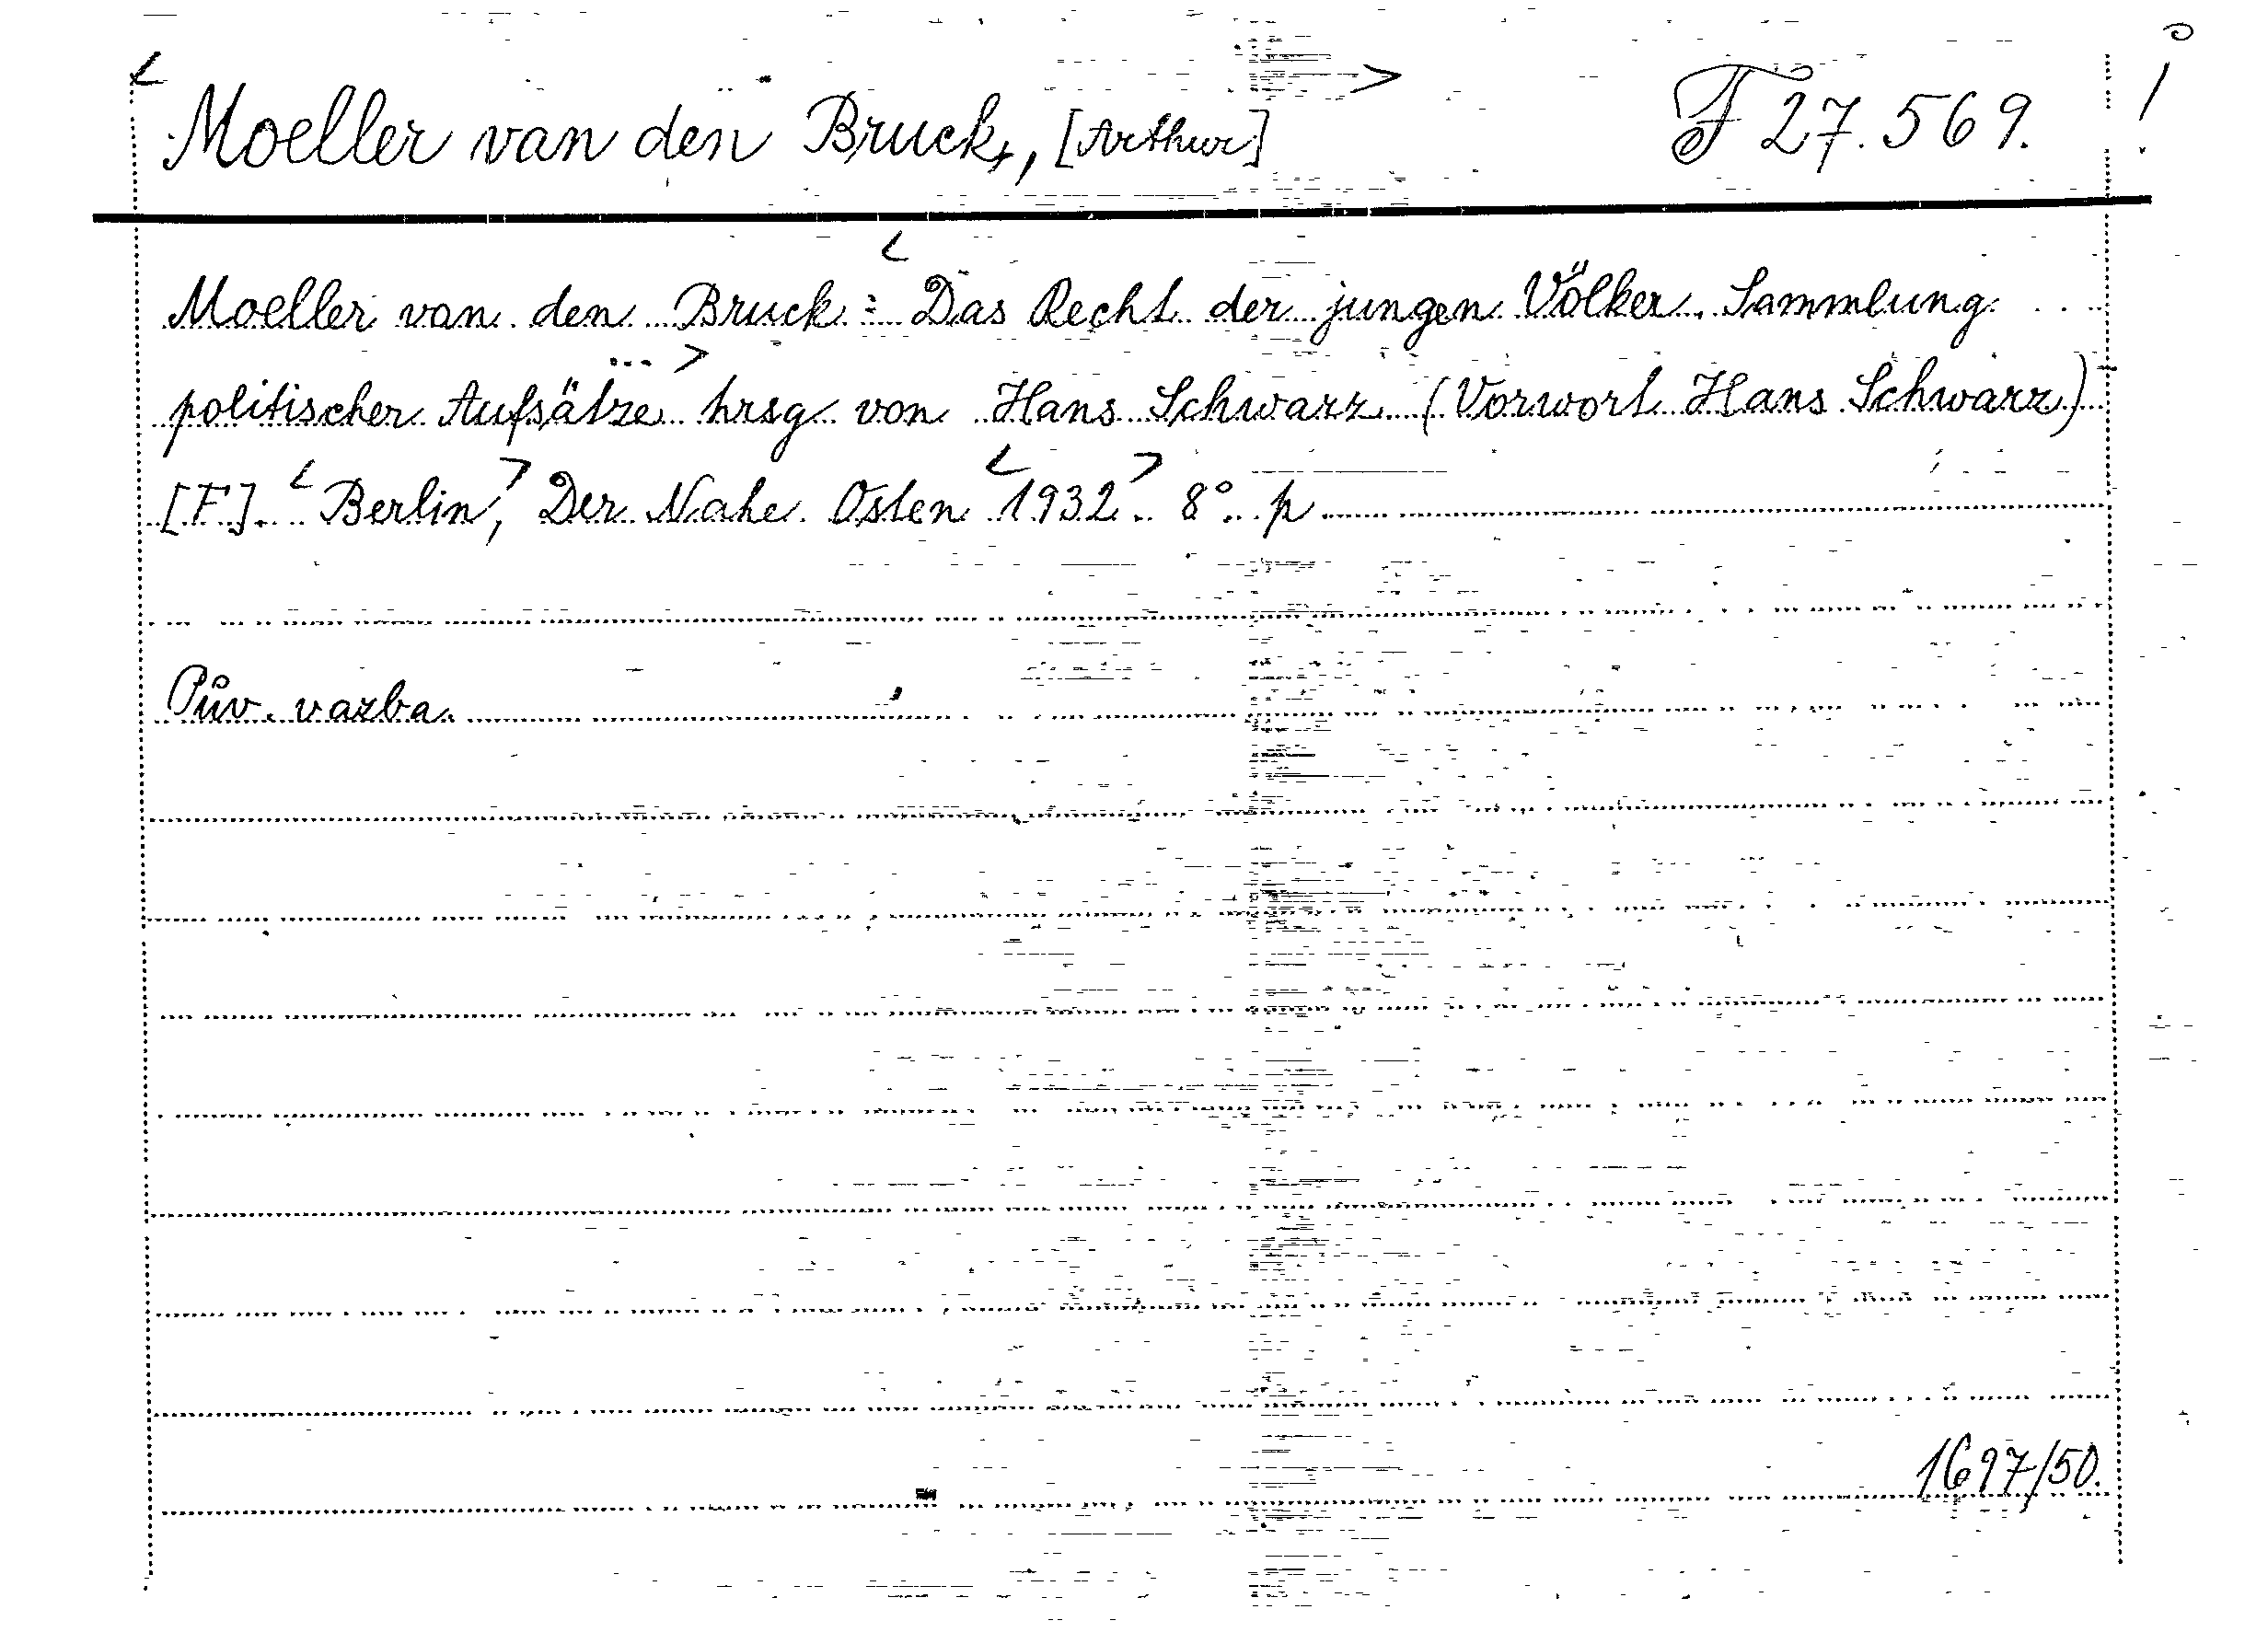 < Moeller van den Bruck, [Arthur] > F 27.569. !
Moeller van den Bruck : < Das Recht der jungen Völker. Sammlung
politischer Aufsätze ... > hrsg von Hans Schwarz (Vorwort Hans Schwarz)
[F]. < Berlin, > Der Nahe Osten < 1932 >. 8°. p
Pův. vazba.
1697/50.